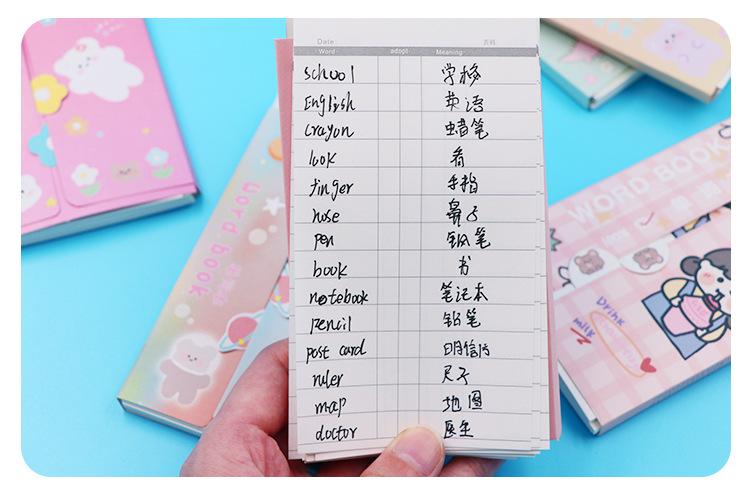 Date: 页码:
Word adopt Meaning
school 学校
English 英语
crayon 蜡笔
look 看
finger 手指
nose 鼻子
pen 钢笔
book 书
notebook 笔记本
pencil 铅笔
post card 明信片
ruler 尺子
map 地图
doctor 医生
word book
WORD BOOK
Drink
milk